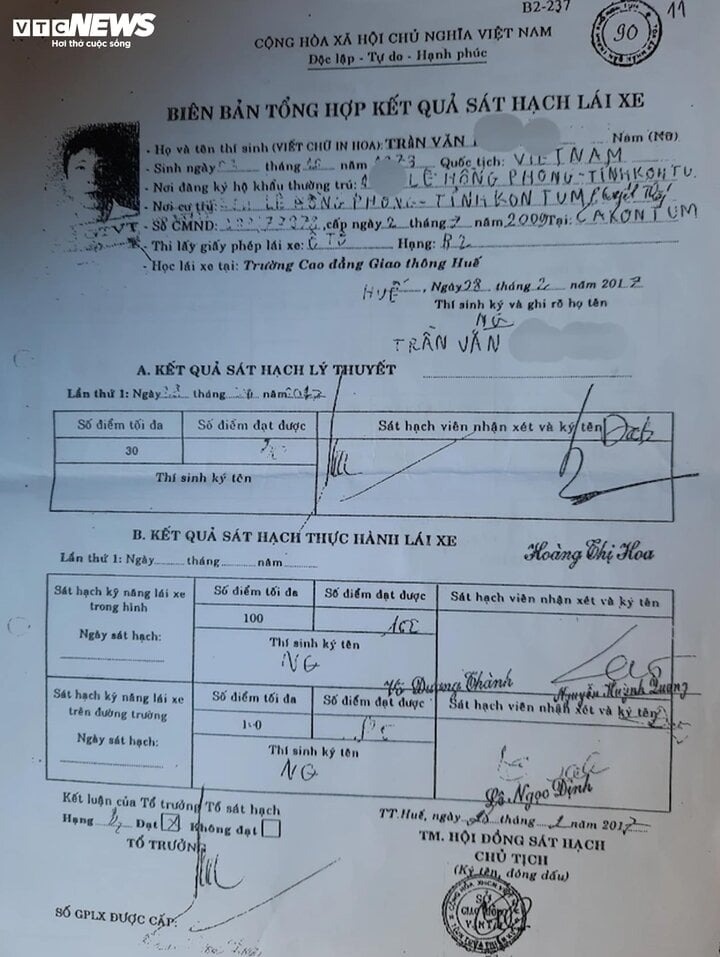 VTC NEWS
Hơi thở cuộc sống
B2-237
90
11
CỘNG HÒA XÃ HỘI CHỦ NGHĨA VIỆT NAM
Độc lập - Tự do - Hạnh phúc
BIÊN BẢN TỔNG HỢP KẾT QUẢ SÁT HẠCH LÁI XE
- Họ và tên thí sinh (VIẾT CHỮ IN HOA): TRẦN VĂN Nam (Nữ)
- Sinh ngày tháng năm Quốc tịch: VIETNAM
- Nơi đăng ký hộ khẩu thường trú: LÊ HỒNG PHONG - TỈNH KON TUM
- Nơi cư trú: LÊ HỒNG PHONG - TỈNH KON TUM
- Số CMND: , cấp ngày 2 tháng 7 năm 2009 Tại: CA KON TUM
- Thi lấy giấy phép lái xe: Ô TÔ Hạng: B2
- Học lái xe tại: Trường Cao đẳng Giao thông Huế
HUẾ, Ngày 28 tháng 2 năm 2017
Thí sinh ký và ghi rõ họ tên
TRẦN VĂN
A. KẾT QUẢ SÁT HẠCH LÝ THUYẾT
Lần thứ 1: Ngày tháng năm 2017
Số điểm tối đa Số điểm đạt được Sát hạch viên nhận xét và ký tên
30
Thí sinh ký tên
B. KẾT QUẢ SÁT HẠCH THỰC HÀNH LÁI XE
Hoàng Thị Hoa
Lần thứ 1: Ngày tháng năm
Sát hạch kỹ năng lái xe trong hình Số điểm tối đa Số điểm đạt được Sát hạch viên nhận xét và ký tên
100
Ngày sát hạch: Thí sinh ký tên
Võ Dương Thành Nguyễn Huỳnh Quang
Sát hạch kỹ năng lái xe trên đường trường Số điểm tối đa Số điểm đạt được Sát hạch viên nhận xét và ký tên
100
Ngày sát hạch: Thí sinh ký tên
Lê Ngọc Định
Kết luận của Tổ trưởng Tổ sát hạch
Hạng Đạt Không đạt
TỔ TRƯỞNG
TT.Huế, ngày tháng năm 2017
TM. HỘI ĐỒNG SÁT HẠCH
CHỦ TỊCH
(Ký tên, đóng dấu)
SỐ GPLX ĐƯỢC CẤP: